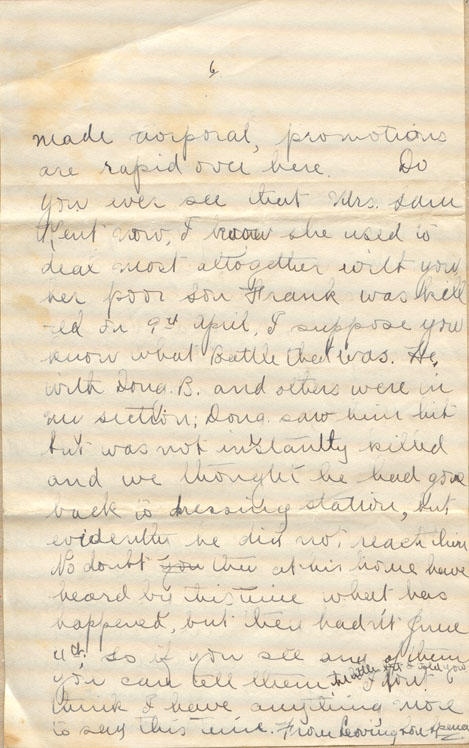 6
made corporal, promotions
are rapid over here. Do
you ever see that Mrs. Sam
Kent now, I know she used to
deal most altogether with you
her poor son Frank was kill
-ed on 9th April, I suppose you
know what Battle that was. He,
with Doug. B. and others were in
my section; Doug. saw him hit
but was not instantly killed
and we thought he had gone
back to dressing station, but
evidently he did not reach there
No doubt you they at his home have
heard by this time what has
happened, but they hadn't June
4th, so if you see any of them
you can tell them I told you
think I have anything more
to say this time. From Loving Son